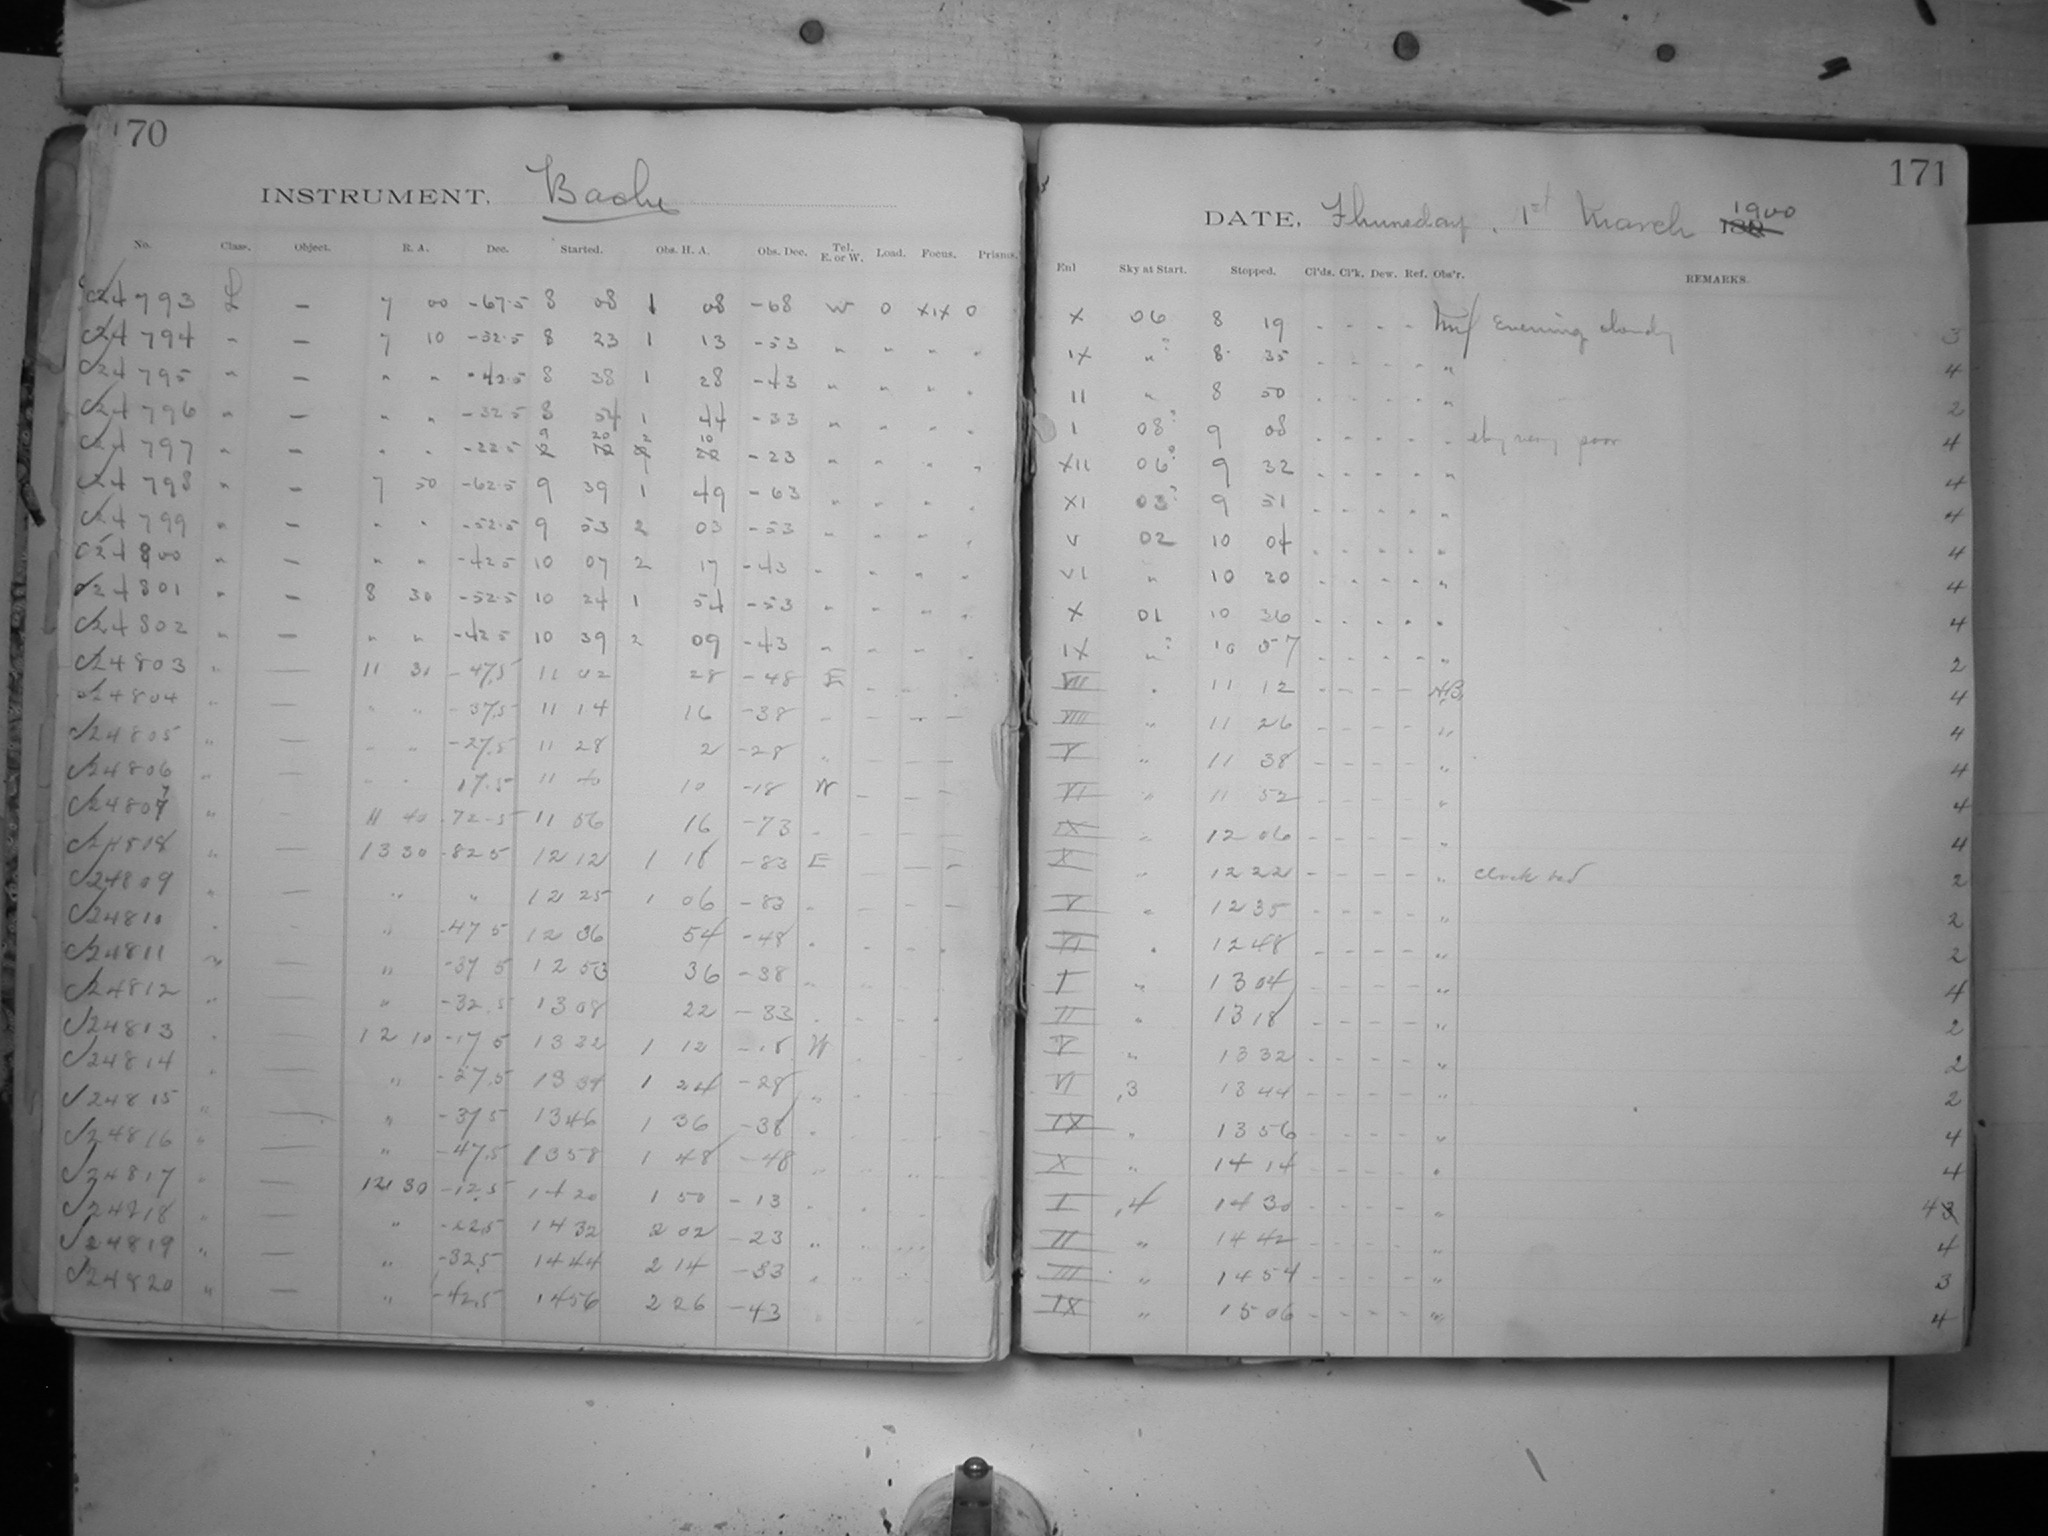 170
INSTRUMENT. Bache
No. Class. Object. R. A. Dec. Started. Obs. H. A. Obs. Dec. Tel. E. or W. Load. Focus. Prisms.
24793 L — 7 00 -67.5 8 08 1 08 -68 W 0 XIX 0
24794 " — 7 10 -52.5 8 23 1 13 -53 " " " "
24795 " — " " -42.5 8 38 1 28 -43 " " " "
24796 " — " " -32.5 8 54 1 44 -33 " " " "
24797 " — " " -22.5 9 20 2 10 -23 " " " "
24798 " — 7 50 -62.5 9 39 1 49 -63 " " " "
24799 " — " " -52.5 9 53 2 03 -53 " " " "
24800 " — " " -42.5 10 07 2 17 -43 " " " "
24801 " — 8 30 -52.5 10 24 1 54 -53 " " " "
24802 " — " " -42.5 10 39 2 09 -43 " " " "
24803 " — 11 30 -47.5 11 02 28 -48 E
24804 " — " " -37.5 11 14 16 -38
24805 " — " " -27.5 11 28 2 -28 "
24806 " — " " 17.5 11 40 10 -18 W
24807 " — 11 40 -72.5 11 56 16 -73 "
24818 " — 13 30 -82.5 12 12 1 18 -83 E
24809 " — " " 12 25 1 06 -83 "
24810 " — " -47.5 12 36 54 -48 "
24811 " — " -37.5 12 53 36 -38 "
24812 " — " -32.5 13 08 22 -33 "
24813 " — 12 10 -17.5 13 22 1 12 -18 W
24814 " — " -27.5 13 34 1 24 -28 "
24815 " — " -37.5 13 46 1 36 -38 "
24816 " — " -47.5 13 58 1 48 -48 "
24817 " — 12 30 -12.5 14 20 1 50 -13 "
24818 " — " -22.5 14 32 2 02 -23 "
24819 " — " -32.5 14 44 2 14 -33 "
24820 " — " -42.5 14 56 2 26 -43 "
171
DATE. Thursday, 1st March 1900
Enl Sky at Start. Stopped. Cl'ds. Cl'k. Dew. Ref. Obs'r. REMARKS.
X 06 8 19 - - - - Evening cloudy 3
IX "? 8 35 - - - - " 4
II " 8 50 - - - - " 2
I 08? 9 08 - - - - " sky very poor 4
XII 06? 9 32 - - - - " 4
XI 03? 9 51 - - - - " 4
V 02 10 04 - - - - " 4
VI " 10 20 - - - - " 4
X 01 10 36 - - - - " 4
IX "? 10 57 - - - - " 2
VII " 11 12 - - - - 4
VIII " 11 26 - - - - " 4
V " 11 38 - - - - " 4
VI " 11 52 - - - - " 4
IX " 12 06 - - - - " 4
X " 12 22 - - - - " clock 2
V " 12 35 - - - - " 2
VI " 12 48 - - - - " 2
I " 13 04 - - - - " 4
II " 13 18 - - - - " 2
V " 13 32 - - - - " 2
VI ,3 13 44 - - - - " 2
IX " 13 56 - - - - " 4
X " 14 14 - - - - " 4
I ,4 14 30 - - - - " 4
II " 14 42 - - - - " 4
III " 14 54 - - - - " 3
IX " 15 06 - - - - " 4